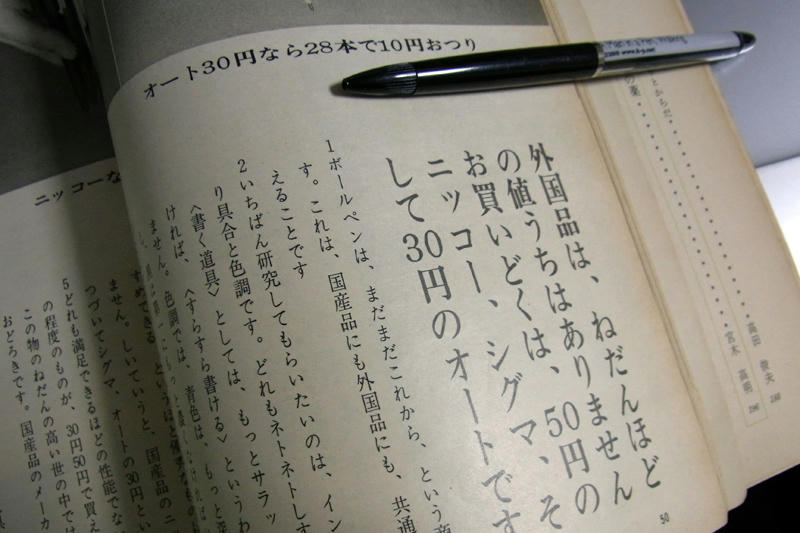 オート30円なら28本で10円おつり
外国品は、ねだんほど
の値うちはありません
お買いどくは、50円の
ニッコー、シグマ、そ
して30円のオートです
1ボールペンは、まだまだこれから、という商
す。これは、国産品にも外国品にも、共通
えることです
2いちばん研究してもらいたいのは、イン
り具合と色調です。どれもネトネトしす
〈書く道具〉としては、もっとサラッ
ければ、〈すらすら書ける〉というわ
ません。色調では、青色は、もっと深
ません。しいていうと、国産品のニ
つづいてシグマ、オートの30円とい
5どれも満足できるほどの性能でな
の程度のものが、30円50円で買え
この物のねだんの高い世の中では
おどろきです。国産品のメーカ
ニッコーな
とからだ
の薬
高田 俊夫
宮本 高明
50